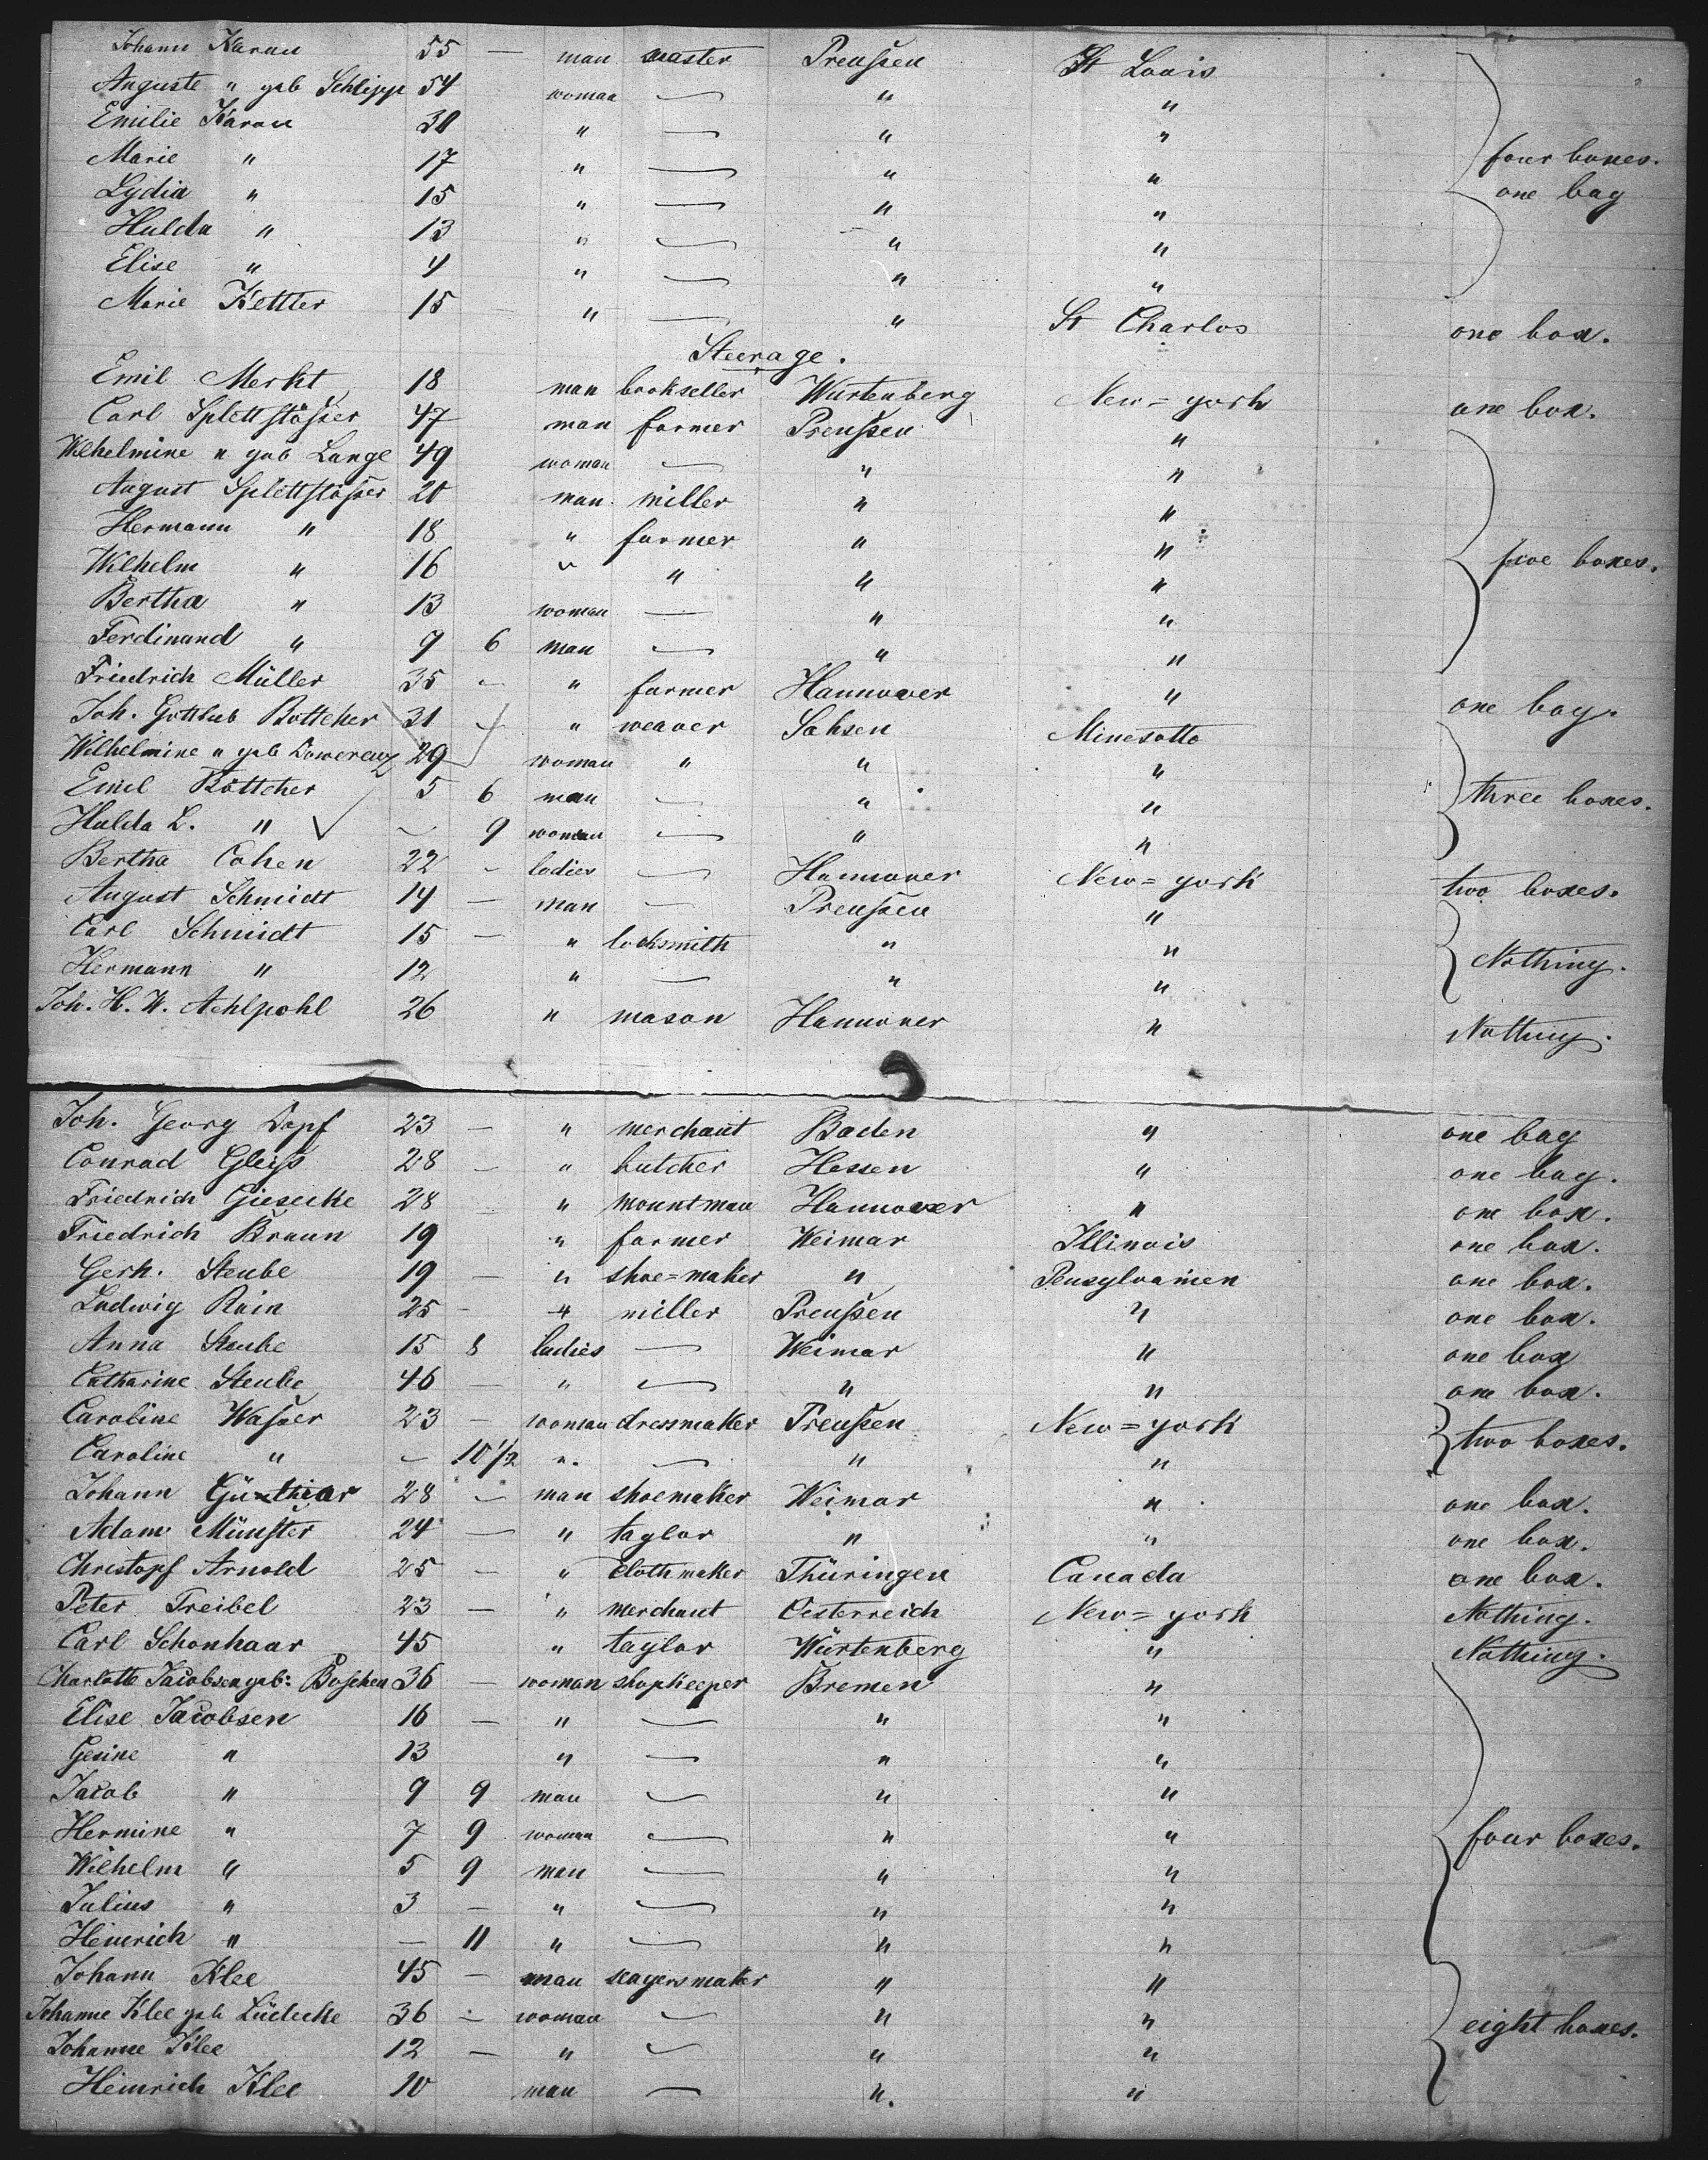 Johann Karau 55 — man master Preußen St Louis
Auguste " geb Schlipp 54 woman — " "
Emilie Karau 30 " — " "
Marie " 17 " — " " four boxes.
Lydia " 15 " — " " one bag
Hulda " 13 " — " "
Elise " 4 " — " "
Marie Kettler 15 " — " St Charlos one box.
Steerage.
Emil Merkt 18 man bookseller Wurtenberg New=york one box.
Carl Splettstößer 47 man farmer Preußen "
Wilhelmine " geb Lange 49 woman — " "
August Splettstößer 20 man miller " "
Hermann " 18 " farmer " "
Wilhelm " 16 " " " " five boxes.
Bertha " 13 woman — " "
Ferdinand " 9 6 man — " "
Friedrich Müller 35 - " farmer Hannover " one bag.
Joh. Gottlieb Bottcher 31 - " weaver Sahsen Minesotto
Wilhelmine " geb 29 woman " " "
Emil Böttcher 5 6 man — " " three boxes.
Hulda L. " — 9 woman — " "
Bertha Cohen 22 - ladies — Hannover New=york two boxes.
August Schmidt 14 — man — Preußen "
Carl Schmidt 15 — " locksmith " " Nothing.
Hermann " 12 " — " "
Joh. H. W. Ahlpohl 26 " mason Hannover " Nothing.
Joh. Georg Dopf 23 — " merchant Baden " one bag
Conrad Gleiß 28 — " butcher Hessen " one bag.
Friedrich Giesecke 28 — " mountman Hannover " one box.
Friedrich Braun 19 " farmer Weimar Illinois one box.
Gerh. Steube 19 — " shoe=maker " Pensylvanien one box.
Ludwig Rain 25 - " miller Preußen " one box.
Anna Steube 15 8 ladies — Weimar " one box
Catharine Steube 46 — " — " " one box.
Caroline Waßer 23 — woman dressmaker Preußen New=york two boxes.
Caroline " — 10 1/2 ". — " "
Johann Günthiar 28 - man shoemaker Weimar " one box.
Adam Münster 24 — " taylor " " one box.
Christopf Arnold 25 — " clothmaker Thüringen Canada one box.
Peter Treibel 23 — " merchant Oesterreich New=york Nothing.
Carl Schonhaar 45 " taylor Würtenberg " Nothing.
Charlotte Jacobsen geb: Buschen 36 — woman shopkeeper Bremen "
Elise Jacobsen 16 — " — " "
Gesine " 13 " — " "
Jacob " 9 9 man — " "
Hermine " 7 9 woman — " " four boxes.
Wilhelm " 5 9 man — " "
Julius " 3 — " — " "
Heinrich " — 11 " — " "
Johann Klee 45 — man seagersmaker " "
Johanne Klee geb Lüdecke 36 — woman — " " eight boxes.
Johanne Klee 12 — " — " "
Heinrich Klee 10 man — ". "